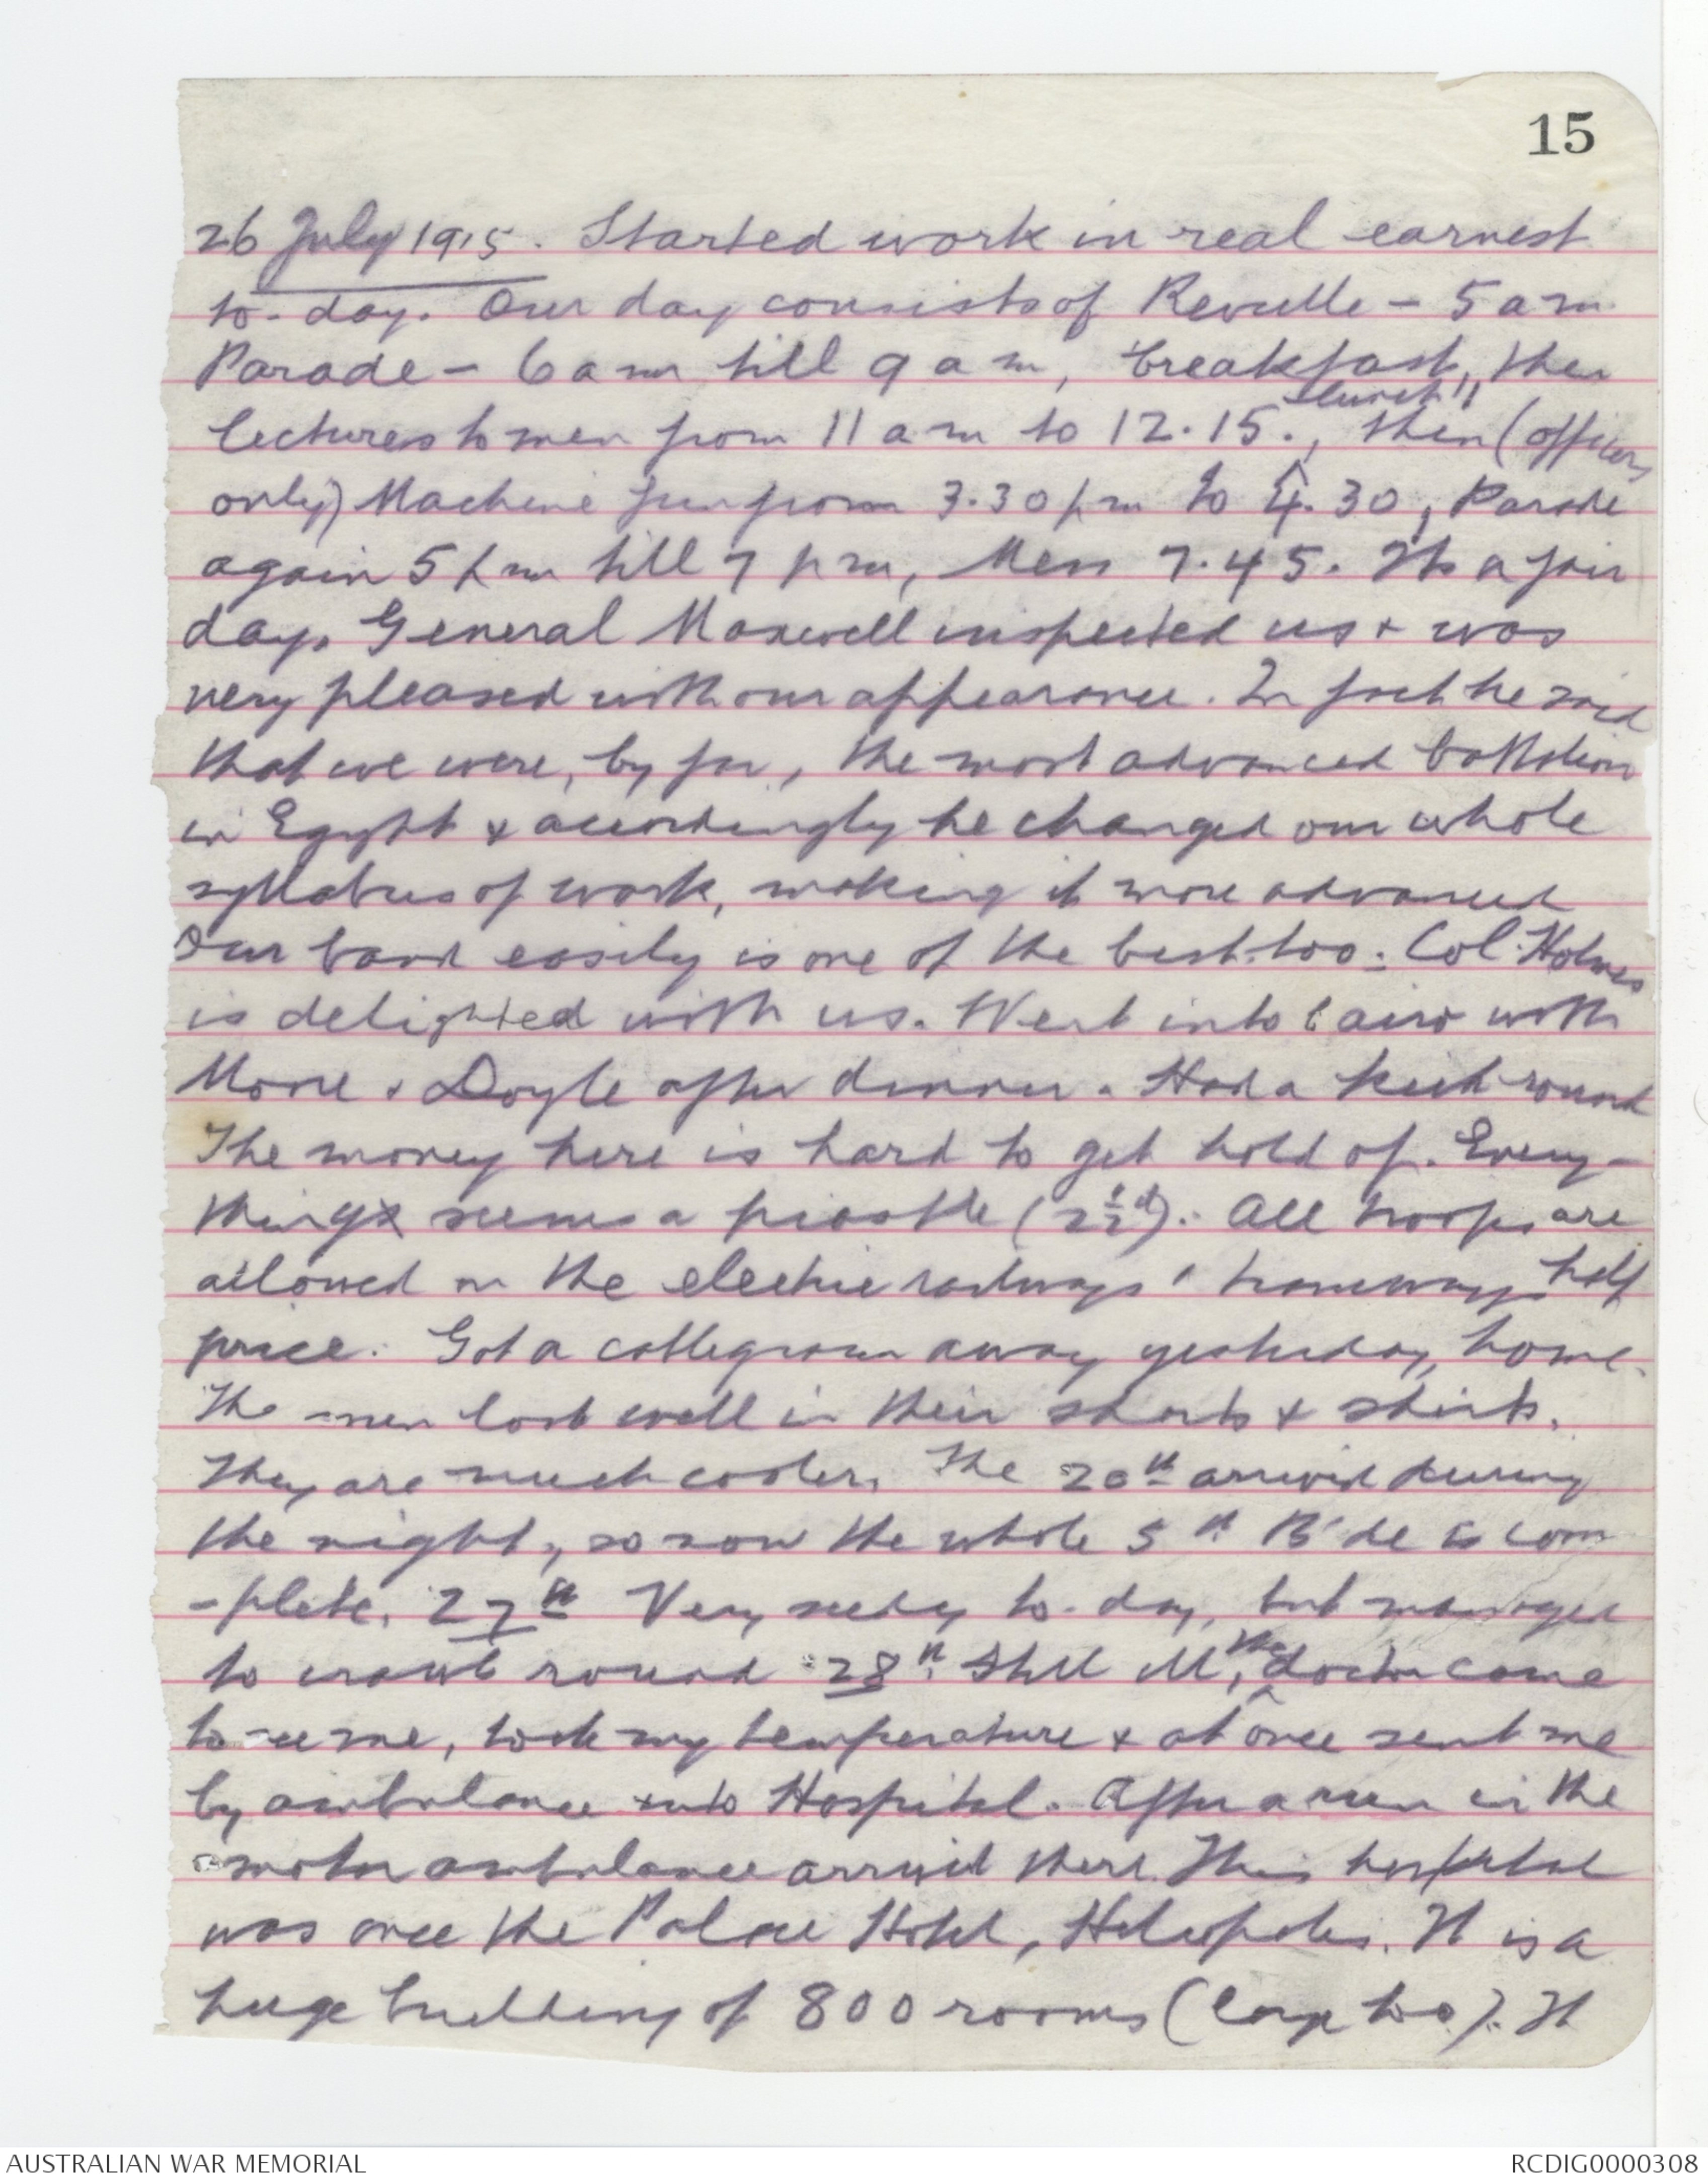 15
26 July 1915. Started work in real earnest
to-day. Our day consists of Reveille - 5 am
Parade - 6 am till 9 am, breakfast, then
lectures to men from 11 am to 12.15., lunch, then (officers
only) Machine Gun from 3.30 pm to 4.30, Parade
again 5 pm till 7 pm, Mess 7.45. Its a fair
day. General Maxwell inspected us & was
very pleased with our appearance. In fact he said
that we were, by far, the most advanced battalion
in Egypt & accordingly he changed our whole
syllabus of work, making it more advanced
Our band easily is one of the best too. Col. Holmes
is delighted with us. Went into Cairo with
& Doyle after dinner. Had a round
The money here is hard to get hold of. Every-
thing seems a piastre (2½d). All troops are
allowed on the electric railways & tramways half
price. Got a cablegram away yesterday, home.
The men look well in their shorts & shirts.
They are much cooler. The 20th arrived during
the night, so now the whole 5th B'de is com
-plete. 27th Very seedy to-day, but managed
to crawl round 28th. Still ill, the doctor came
to see me, took my temperature & at once sent me
by ambulance into Hospital. After a run in the
motor ambulance arrived there. This hospital
was once the Palace Hotel, Heliopolis. It is a
huge building of 800 rooms (large too). It
AUSTRALIAN WAR MEMORIAL
RCDIG0000308